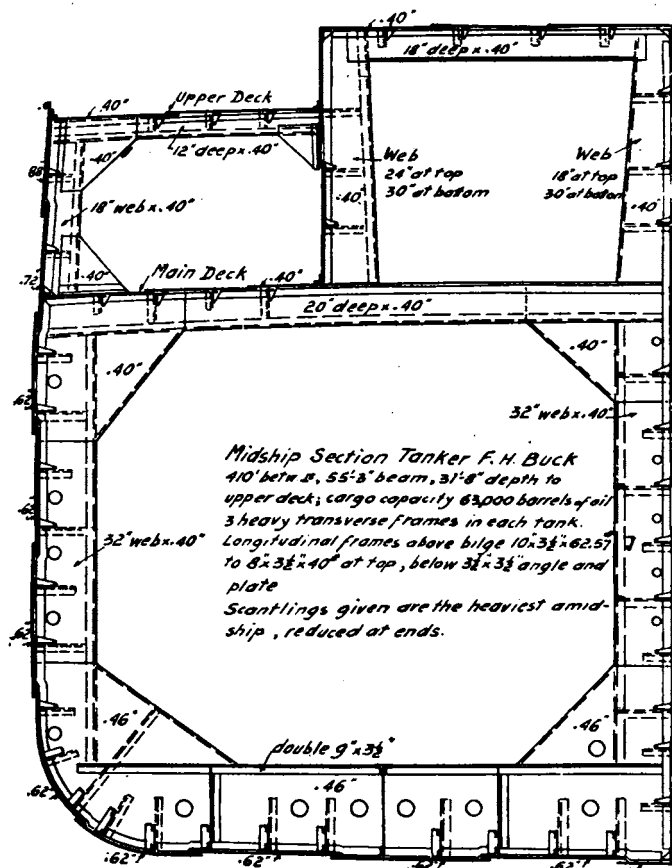 .40"
18" deep x .40"
.40"
Upper Deck
12" deep x .40"
.40"
Web
24" at top
30" at bottom
Web
18" at top
30" at bottom
.88"
18" web x .40"
.40"
.40"
.72"
.40"
Main Deck
.40"
20" deep x .40"
.40"
.40"
.62"
32" web x .40"
Midship Section Tanker F. H. Buck
410' betw. , 55'-3" beam, 31'-8" depth to
upper deck; cargo capacity 63,000 barrels of oil
3 heavy transverse frames in each tank.
Longitudinal frames above bilge 10" x 3½" x 62.57
to 8" x 3½" x 40# at top, below 3½" x 3½" angle and
plate
Scantlings given are the heaviest amid-
ship, reduced at ends.
.62"
32" web x .40"
.62"
.46"
.46"
double 9" x 3½"
.46"
.62"
.62"
.62"
.62"
.62"